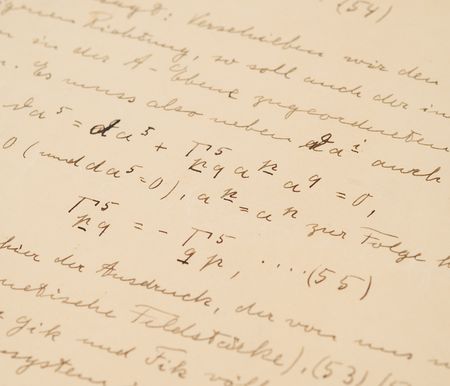 : Verschieben wir den (54)
Richtung, so soll auch der in
in der A-Ebene zugeordneten
. Es muss also neben da^i auch
da^5 = da^5 + Γ^5_pq a^p a^q = 0,
0 (und da^5=0), a^n = a^n zur Folge h
Γ^5_pq = - Γ^5_qp, ....(55)
hier der Ausdruck, der von uns
netische Feldstärke), (53)
gik und Fik
system